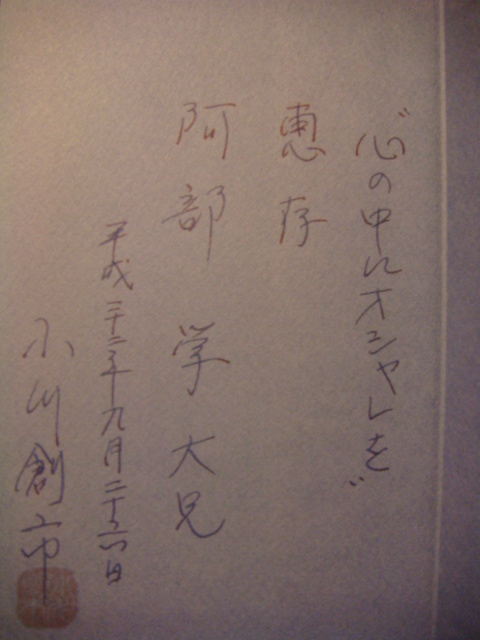 〝心の中にオシャレを〟
恵存
阿部 学大兄
平成二十二年九月二十六日
小川創市